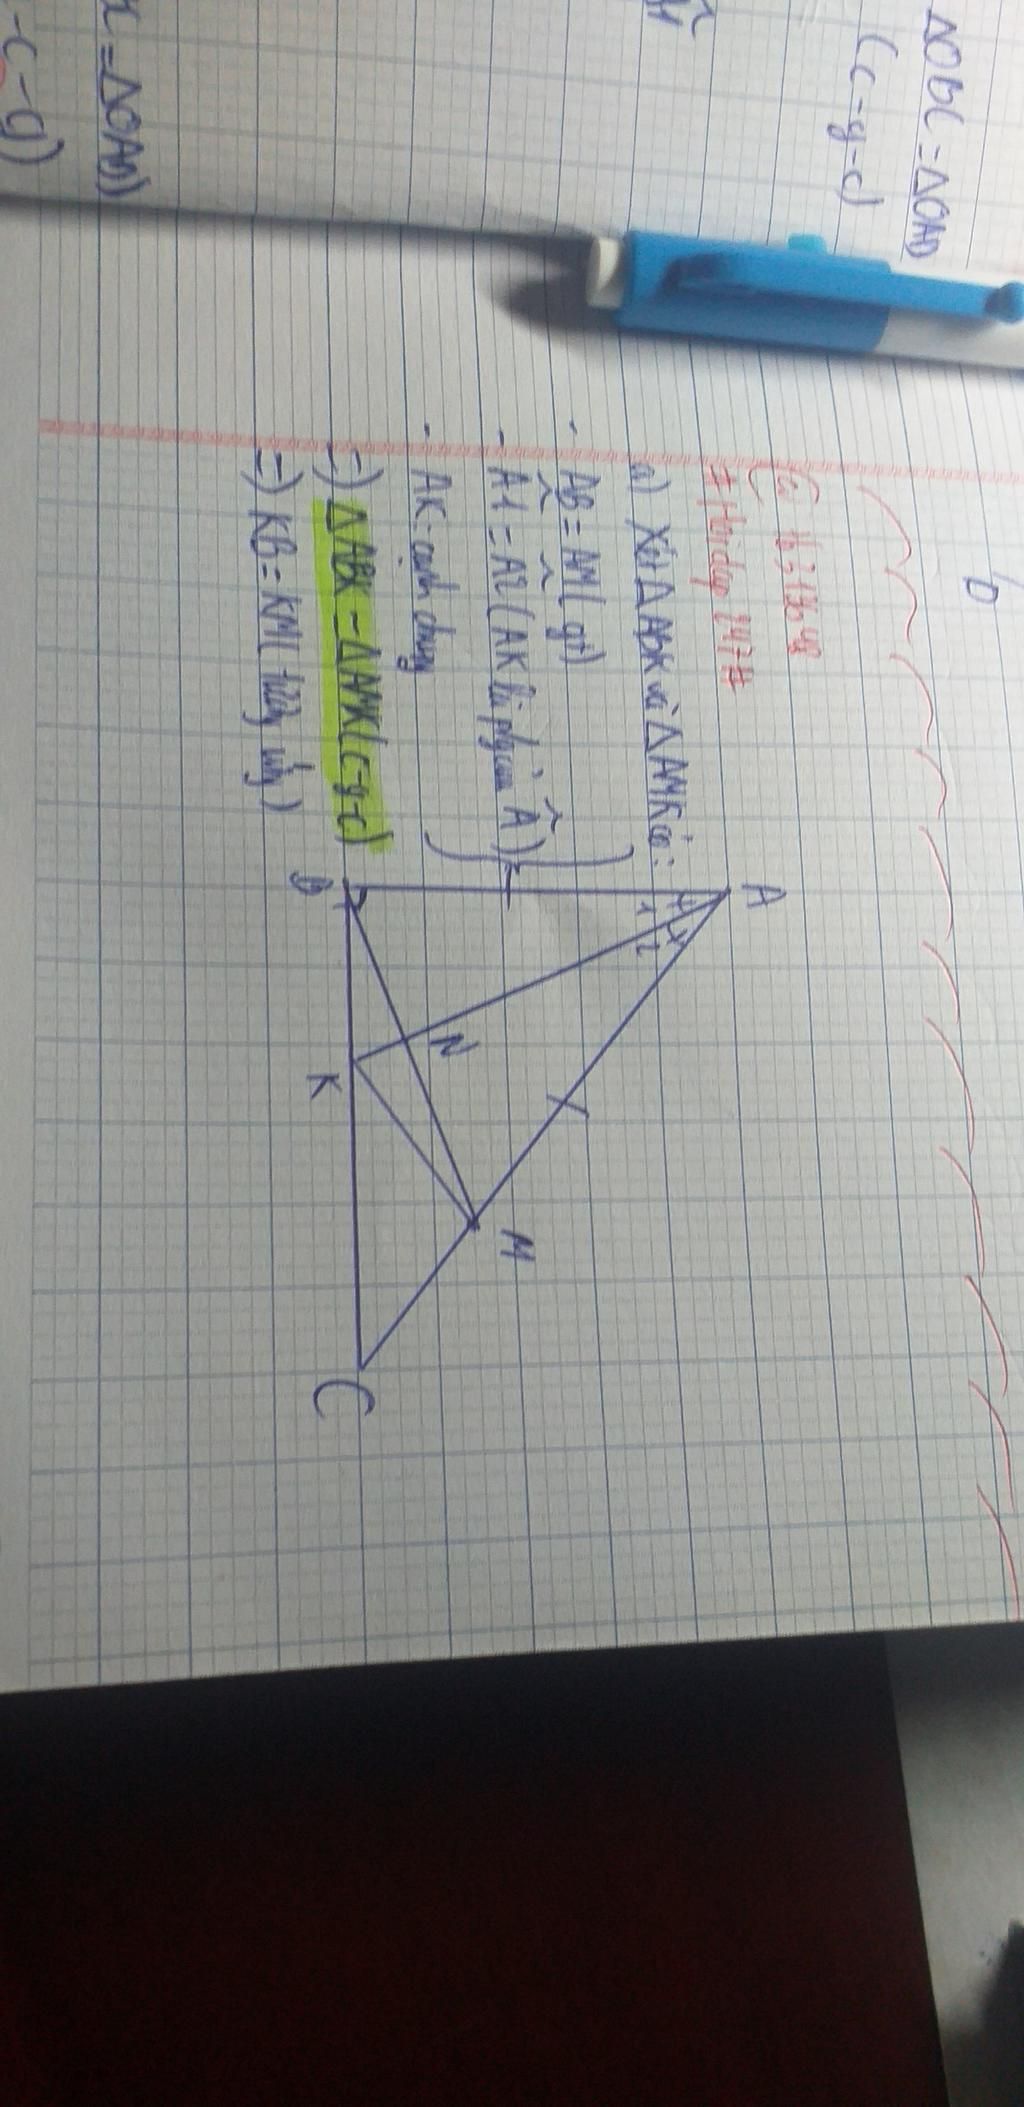 ΔOBC = ΔOAD
(c-g-c)
= ΔOAD)
-c-g)
b
#Hoidap247#
a) Xét ΔABK và ΔAMK có:
- AB = AM (gt)
- Â1 = Â2 (AK là phân giác Â)
- AK: cạnh chung
=) ΔABK = ΔAMK (c-g-c)
=) KB = KM (tương ứng)
A
1 2
N
M
B
K
C